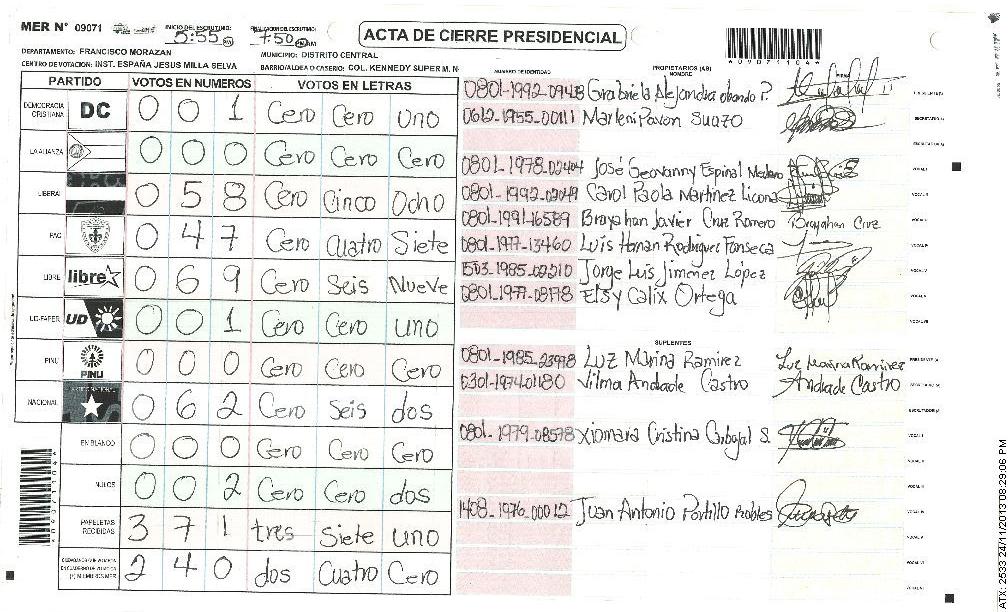 MER N° 09071
INICIO DEL ESCRUTINIO: 5:55 PM
FINALIZACION DEL ESCRUTINIO: 7:50 PM AM
ACTA DE CIERRE PRESIDENCIAL
DEPARTAMENTO: FRANCISCO MORAZAN
MUNICIPIO: DISTRITO CENTRAL
CENTRO DE VOTACION: INST. ESPAÑA JESUS MILLA SELVA
BARRIO/ALDEA O CASERIO: COL. KENNEDY SUPER M. N
PARTIDO VOTOS EN NUMEROS VOTOS EN LETRAS
DEMOCRACIA CRISTIANA DC 0 0 1 Cero Cero Uno
LA ALIANZA 0 0 0 Cero Cero Cero
LIBERAL 0 5 8 Cero Cinco Ocho
PAC 0 4 7 Cero Cuatro Siete
LIBRE libre 0 6 9 Cero Seis Nueve
UD-FAPER UD 0 0 1 Cero Cero uno
PINU PINU 0 0 0 Cero Cero Cero
NACIONAL 0 6 2 Cero Seis dos
EN BLANCO 0 0 0 Cero Cero Cero
NULOS 0 0 2 Cero Cero dos
PAPELETAS RECIBIDAS 3 7 1 tres Siete uno
2 4 0 dos Cuatro Cero
NUMERO DE IDENTIDAD PROPIETARIOS (AS) NOMBRE
0801-1992-0948 Grabriela Alejandra obando P.
0612-1955-00111 Marleni Pavon Suazo
0801-1978-02404 José Geovanny Espinal Medano
0801-1992-02049 Carol Paola Martinez Licona
0801-1991-16589 Brayahan Javier Cruz Romero Brayahan Cruz
0801-1977-13460 Luis Hernan Rodriguez Fonseca
1503-1985-02210 Jorge Luis Jimenez López
0801-1977-08178 Elsy Calix Ortega
SUPLENTES
0801-1985-23998 Luz Marina Ramirez Luz Marina Ramirez
0301-1974-01180 Vilma Andrade Castro Andrade Castro
0801-1979-08598 Xiomara Cristina Carbajal S.
1408-1976-00012 Juan Antonio Portillo Robles
ATX: 2533 24/11/2013 08:29:06 PM